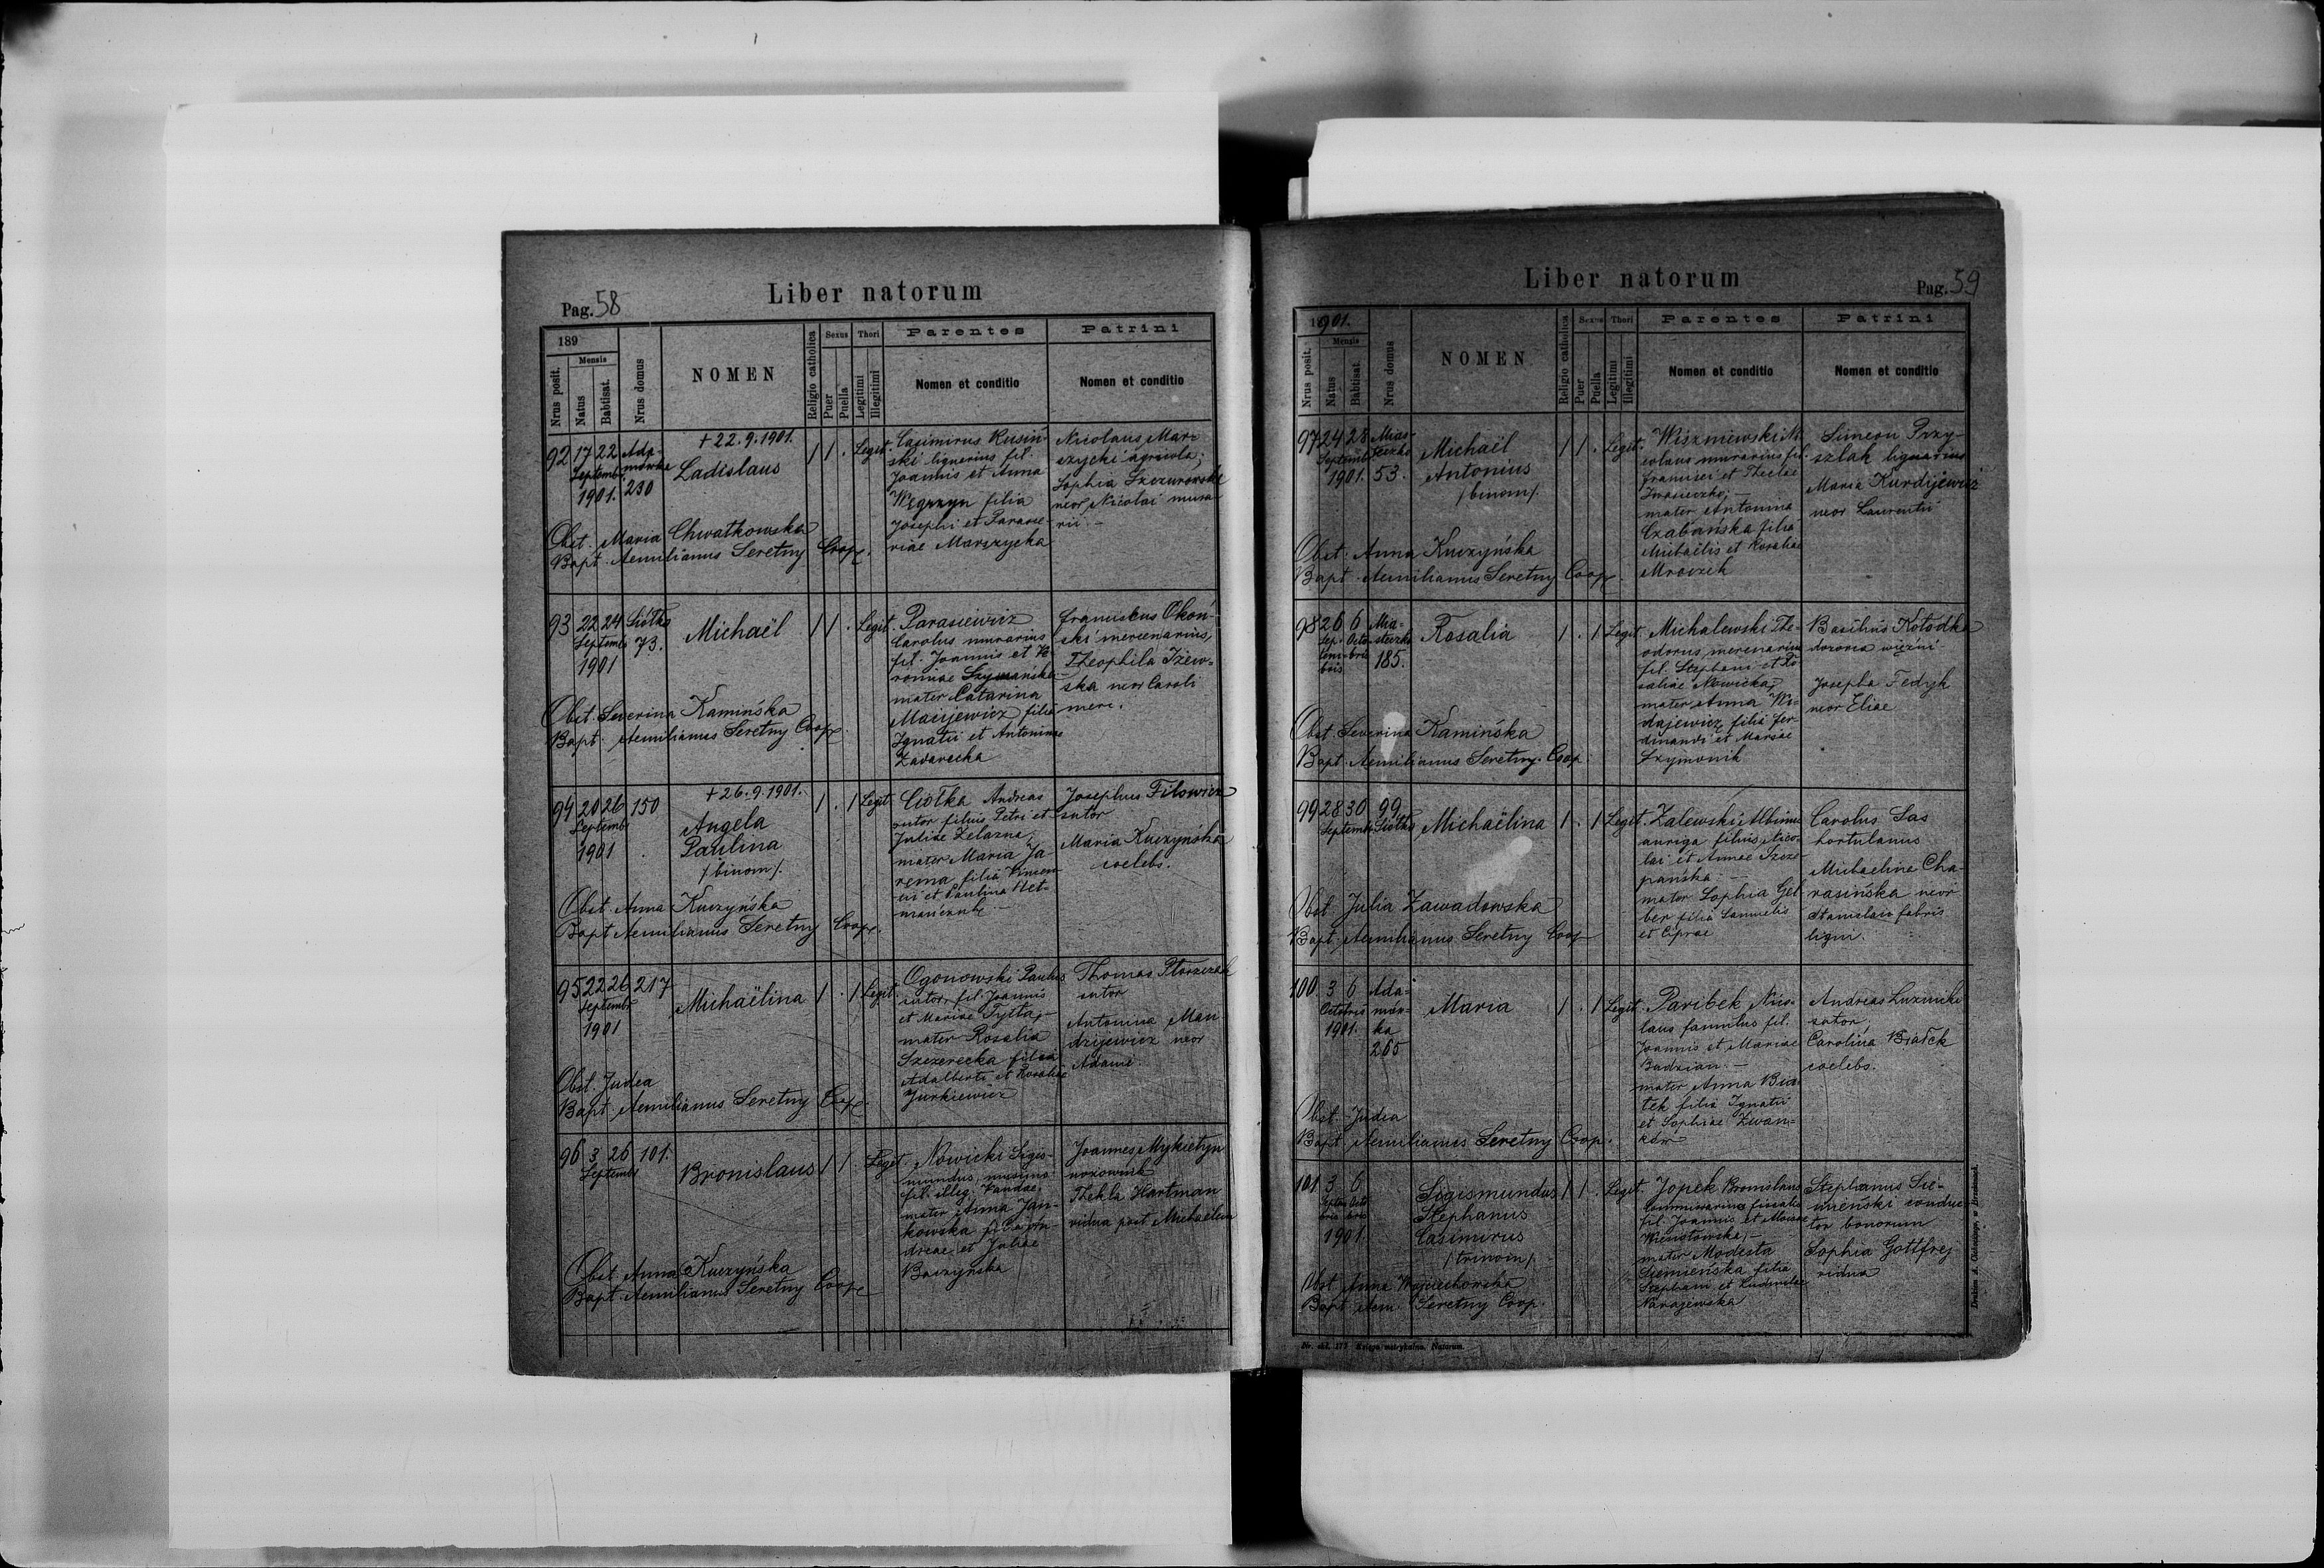 Pag. 58
Liber natorum
189
Mensis
Nrus posit.
Natus
Babtisat.
Nrus domus
NOMEN
Religio catholica
Sexus
Puer
Puella
Thori
Legitimi
Illegitimi
Parentes
Nomen et conditio
Patrini
Nomen et conditio
92 17 22
Septemb.
1901. 230
+ 22.9.1901.
Ladislaus
1 1 . Legit.
Casimirus Rusiń-
ski lignarius fil.
Joannis et Anna
Węgrzyn filia
Josephi et Parasce-
viae Marszycka
Nicolaus Mar-
szycki agricola;
Sophia Szczurowska
uxor Nicolai mura-
rii -
Obst. Maria Chwatkowska
Bapt. Aemilianus Seretny Coop.
93 22 24 Siółko
Septemb. 73.
1901
Michaël
1 1 . Legit.
Parasiewicz
Carolus murarius
fil. Joannis et Ve-
ronicae Szymańska
mater Catarina
Macijewicz filia
Ignatii et Antoninae
Zavarecka
Franciscus Okoń-
ski mercenarius,
Theophila Iżew-
ska uxor Caroli
merc.
Obst. Severina Kamińska
Bapt. Aemilianus Seretny Coop.
94 20 26 150
Septemb.
1901
+ 26.9.1901.
Angela
Paulina
/binom/.
1 . 1 Legit.
Ciołka Andreas
sutor filius Petri et
Juliae Żelazna,
mater Maria Ja
rema filia Vincen-
tii et Paulina Het-
mańczuk -
Josephus Filowicz
sutor
Maria Kuczyńska
coelebs.
Obst. Anna Kuczyńska
Bapt. Aemilianus Seretny Coop.
95 22 26 217
Septemb.
1901
Michaëlina
1 . 1 Legit.
Ogonowski Paulus
sutor, fil. Joannis
et Mariae Tytla, -
mater Rosalia
Szczerecka filia
Adalberti et Rosaliae
Jurkiewicz
Thomas
sutor
Antonina Man-
dzyjewicz uxor
Adami.
Obst. Judea
Bapt. Aemilianus Seretny Coop.
96 3 26 101.
Septemb.
Bronislaus
1 1 . Legit.
Nowicki Sigis-
mundus,
fil. illeg. Vandae,
mater Anna Jan-
kowska filia An-
dreae et Juliae
Baczyńska
Joannes Mykietyn
Thekla Hartman
vidua post Michaëlem
Obst. Anna Kuczyńska
Bapt. Aemilianus Seretny Coop.
Liber natorum
Pag. 59
1901.
Mensis
Nrus posit.
Natus
Babtisat.
Nrus domus
NOMEN
Religio catholica
Sexus
Puer
Puella
Thori
Legitimi
Illegitimi
Parentes
Nomen et conditio
Patrini
Nomen et conditio
97 24 28 Mias-
Septemb. teczko
1901. 53.
Michaël
Antonius
/binom/.
1 1 . Legit.
Wiszniewski Ni-
colaus murarius fil.
Francisci et Theclae
Iwasieczko; -
mater Antonina
Czabańska filia
Michaëlis et Rosaliae
Mroczek
Simeon Przy-
szlak lignarius
Maria Kurdijewicz
uxor Laurentii
Obst. Anna Kuczyńska
Bapt. Aemilianus Seretny Coop.
98 26 6 Mia-
Sep- Octo- steczko
tem- bris 185.
bris
Rosalia
1 . 1 Legit.
Michalewski The-
odorus, mercenarius
fil. Stephani et Ro-
saliae Nowicka,
mater Anna Wi-
dajewicz filia Fer-
dinandi et Mariae
Szymonik
Basilius Kołodka
dozorca więźni
Josepha Fedyk
uxor Eliae
Obst. Severina Kamińska
Bapt. Aemilianus Seretny. Coop
99 28 30 99
Septemb. Siółko
Michaëlina
1 . 1 Legit.
Zalewski Albinus
auriga filius Nico-
lai et Annae Szcze-
pańska -
mater Sophia Gel-
ber filia Samuelis
et Ciprae
Carolus Sas
hortulanus
Michaelina Cha-
rasińska uxor
Stanislai fabris
ligni.
Obst. Julia Zawadowska
Bapt. Aemilianus Seretny Coop
100 3 6 Ada-
Octobris mów-
1901. ka
265
Maria
1 . 1 Legit.
Paribek Nico-
laus famulus fil.
Joannis et Mariae
Badzian. -
mater Anna Bia-
łek filia Ignatii
et Sophiae Iwan-
ków
Andreas Luzniski
sutor
Carolina Białek
coelebs.
Obst. Judea
Bapt. Aemilianus Seretny Coop.
101 3 6
1901
Sigismundus
Stephanus
Casimirus
/trinom/
1 1 . Legit.
Jopek Bronislaus
commissarius fiscalis
fil. Joannis et
mater Modesta
Siemieńska filia
Stephani et Ludovicae
Narajewska
Stephanus Sie-
mieński conduc-
tor bonorum
Sophia Gottfrej
vidua
Obst. Anna Wojciechowska
Bapt. Aem. Seretny Coop.
Nr. skł. 177 Księga metrykalna. Natorum.